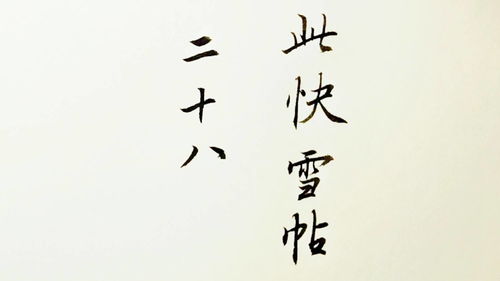 此快雪帖
二十八